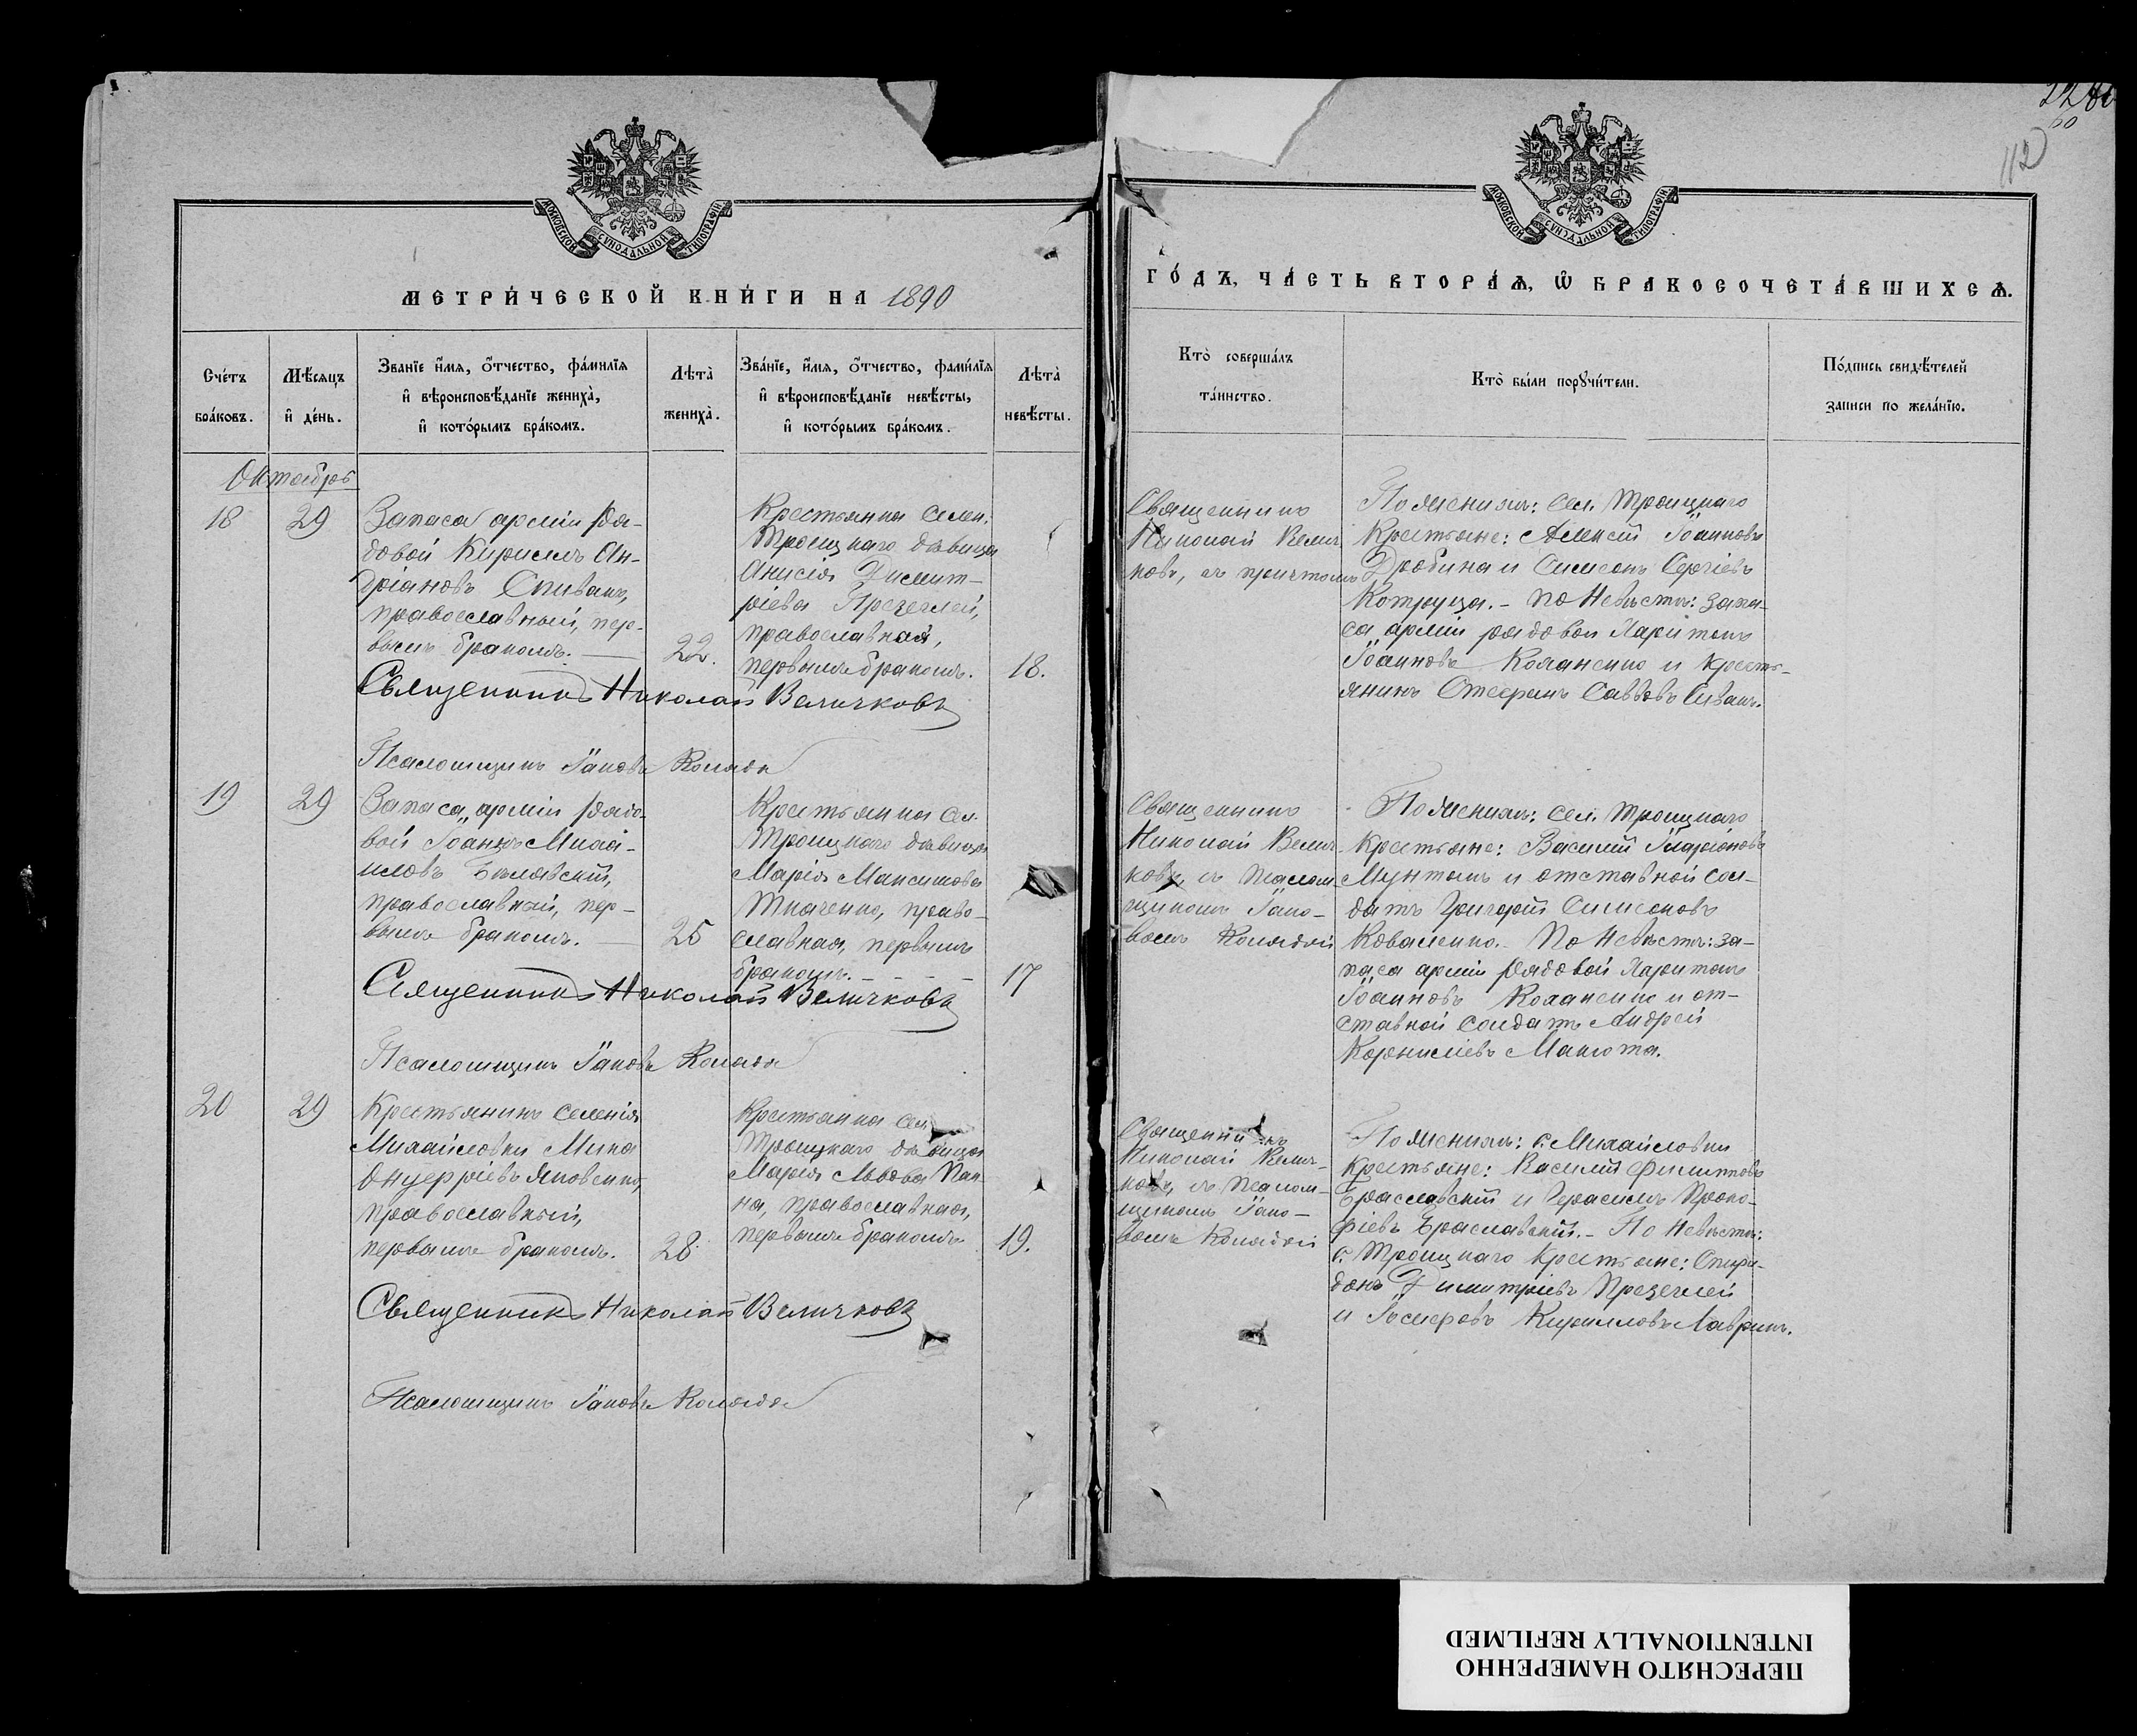 112
МОСКОВСКОЙ СѴНОДАЛЬНОЙ ТИПОГРАФІИ
МЕТРИ́ЧЕСКОЙ КНИ́ГИ НА 1890
Сче́тъ бра́ковъ.
Мѣ́сяцъ и҆ де́нь.
Зва́нїе и҆́мя, ѻ҆́тчество, фами́лїя
и҆ вѣроисповѣ́данїе жениха̀,
и҆ кото́рымъ бра́комъ.
Лѣта̀ жениха̀.
Зва́нїе, и҆́мя, ѻ҆́тчество, фами́лїя
и҆ вѣроисповѣ́данїе невѣ́сты,
и҆ кото́рымъ бра́комъ.
Лѣта̀ невѣ́сты.
Октябрь
18
29
Запаса арміи рядо-
довой Кириллъ Ан-
дріановъ Спивакъ,
православный, пер-
вымъ бракомъ.
22.
Крестьянка селен.
Троицкаго дѣвица
Анисія Димит-
ріева
православная,
первымъ бракомъ.
18.
Священникъ Николай Величковъ
Псаломщикъ Іаковъ Коляда
19
29
Запаса арміи рядо-
вой Іоаннъ Михаи-
ловъ Бѣлявскій,
православный, пер-
вымъ бракомъ.
25
Крестьянка сел.
Троицкаго дѣвица
Марія Максимова
Ткаченко, право-
славная, первымъ
бракомъ.
17
Священникъ Николай Величковъ
Псаломщикъ Іаковъ Коляда
20
29
Крестьянинъ селенія
Михайловки Мина
Онуфріевъ Яковенко,
православный,
первымъ бракомъ.
28.
Крестьянка сел.
Троицкаго дѣвица
Марія Львова Пан-
на, православная,
первымъ бракомъ
19.
Священникъ Николай Величковъ
Псаломщикъ Іаковъ Коляда
МОСКОВСКОЙ СѴНОДАЛЬНОЙ ТИПОГРАФІИ
ГО́ДЪ, ЧА́СТЬ ВТОРА́Ѧ, Ѽ БРАКОСОЧЕТА́ВШИХСѦ.
Кто̀ соверша́лъ
та́инство.
Кто̀ бы́ли порꙋчи́тели.
По́дпись свидѣ́телей
за́писи по жела́нїю.
Священникъ
Николай Велич-
ковъ, съ причтомъ
По женихѣ: сел. Троицкаго
крестьяне: Алексій Іоанновъ
Дробина и Симеонъ Сергіевъ
Котруца. - По Невѣстѣ: запа-
са арміи рядовой Харитонъ
Іоанновъ Коханенко и кресть-
янинъ Стефанъ Саввовъ Сивакъ.
Священникъ
Николай Велич-
ковъ, съ псалом-
щикомъ Іако-
вомъ Колядой
По женихѣ: сел. Троицкаго
крестьяне: Василій Иларіоновъ
Мунтянъ и отставной сол-
датъ Григорій Симеоновъ
Коваленко. - По Невѣстѣ: за-
паса арміи рядовой Харитонъ
Іоанновъ Коханенко и от-
ставной солдатъ Андрей
Корниліевъ Макота.
Священникъ
Николай Велич-
ковъ, съ псалом-
щикомъ Іако-
вомъ Колядой
По женихѣ: с. Михайловки
крестьяне: Василій Филипповъ
Браславскій и Герасимъ Проко-
фіевъ Браславскій. - По Невѣстѣ:
с. Троицкаго крестьяне: Спири-
донъ Димитріевъ
и Іосифъ Кирилловъ Лаврикъ.
ПЕРЕСНЯТО НАМЕРЕННО
INTENTIONALLY REFILMED